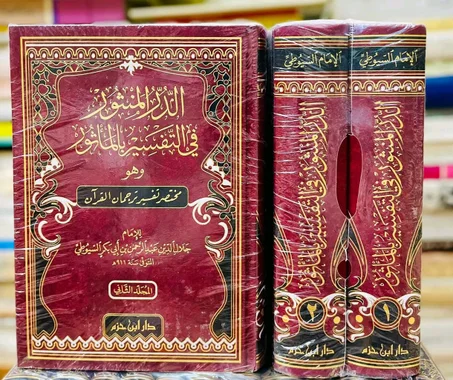 الدر المنثور
في التفسير بالمأثور
وهو
مختصر تفسير ترجمان القرآن
للإمام
جلال الدين عبد الرحمن بن أبي بكر السيوطي
المتوفى سنة ٩١١ هـ
المجلد الثاني
دار ابن حزم
الإمام السيوطي
الدر المنثور في التفسير بالمأثور
٢
دار ابن حزم
الإمام السيوطي
الدر المنثور في التفسير بالمأثور
١
دار ابن حزم